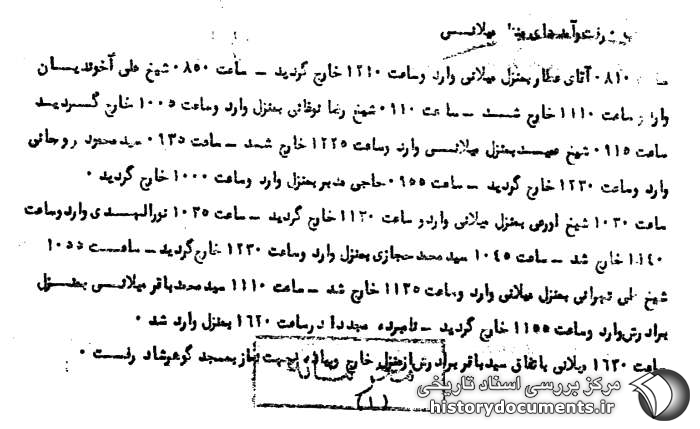 رفت و آمدهای میلانی
ساعت ۰۸۱۰ آقای عطار بمنزل میلانی وارد وساعت ۱۲۱۰ خارج گردید ــ ساعت ۰۸۵۰ شیخ علی آخوندیان
وارد و ساعت ۱۱۱۰ خارج شد ــ ساعت ۰۹۱۰ شیخ رضا نوقانی بمنزل وارد وساعت ۱۰۰۵ خارج گردید
ساعت ۰۹۱۵ شیخ بمنزل میلانی وارد وساعت ۱۲۲۵ خارج شد ــ ساعت ۰۹۳۵ سیدمحمود روحانی
وارد وساعت ۱۲۳۰ خارج گردید ــ ساعت ۰۹۵۵ حاجی مدبر بمنزل وارد وساعت ۱۰۰۰ خارج گردید ۰
ساعت ۱۰۳۰ شیخ اورعی بمنزل میلانی وارد و ساعت ۱۱۳۰ خارج گردید ــ ساعت ۱۰۳۵ نورالهدی وارد وساعت
۱۱۴۰ خارج شد ــ ساعت ۱۰۴۵ سید محمد حجازی بمنزل وارد وساعت ۱۲۳۰ خارج گردید ــ ساعت ۱۰۵۵
شیخ علی تهرانی بمنزل میلانی وارد وساعت ۱۱۳۵ خارج شد ــ ساعت ۱۱۱۰ سید محمد باقر میلانی بمنزل
برادرش وارد وساعت ۱۱۵۵ خارج گردید ــ نامبرده مجددا در ساعت ۱۶۲۰ بمنزل وارد شد ۰
ساعت ۱۶۳۰ میلانی باتفاق سید باقر برادرش از منزل خارج وپیاده بجهت نماز بمسجد گوهرشاد رفت ۰
(۱)
مرکز بررسی اسناد تاریخی
historydocuments.ir